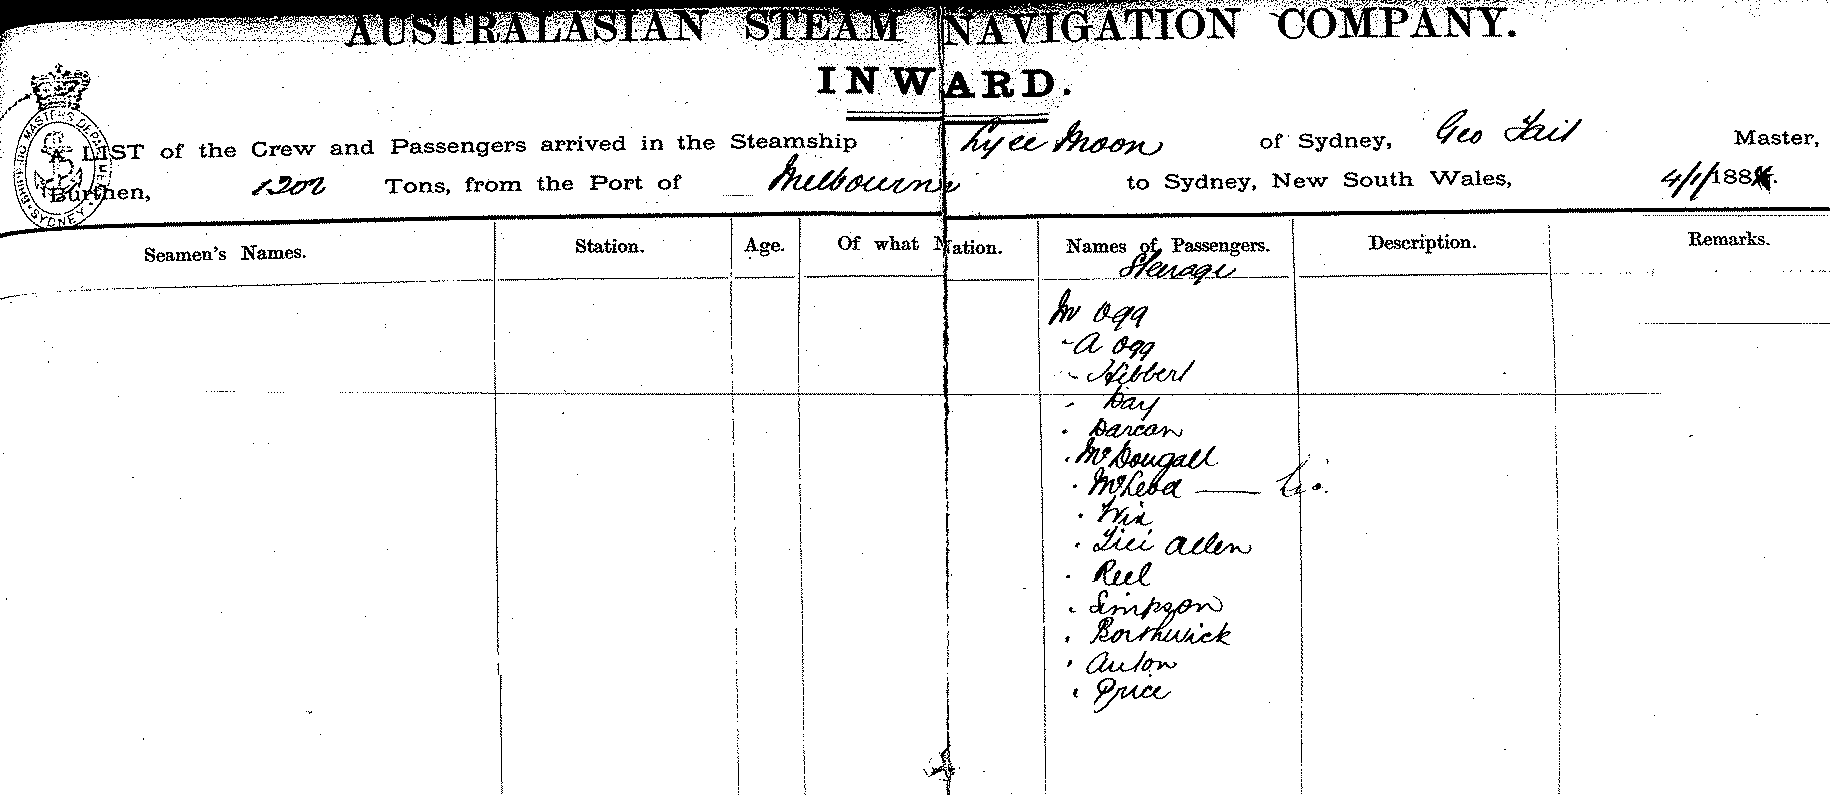 AUSTRALASIAN STEAM NAVIGATION COMPANY.
INWARD.
A LIST of the Crew and Passengers arrived in the Steamship Lyee Moon of Sydney, Geo Tait Master,
Burthen, 1202 Tons, from the Port of Melbourne to Sydney, New South Wales, 4/1/1884.
Seamen's Names. Station. Age. Of what Nation. Names of Passengers. Description. Remarks.
Steerage
Mr Ogg
- A Ogg
- Hibbert
- Day
. Darcan
. McDougall
. McLeod —
. Wix
. Allen
. Reel
. Simpson
. Borthwick
. Anton
. Price
SYDNEY